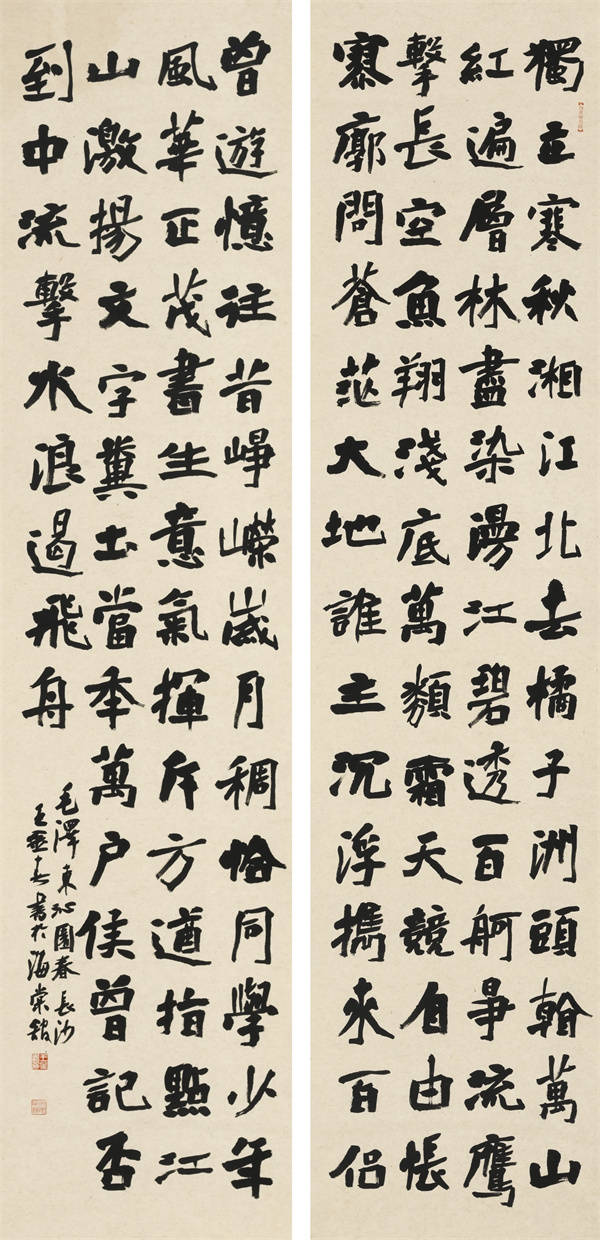 獨立寒秋湘江北去橘子洲頭看萬山
紅遍層林盡染漫江碧透百舸爭流鷹
擊長空魚翔淺底萬類霜天競自由悵
寥廓問蒼茫大地誰主沉浮攜來百侶
曾遊憶往昔崢嶸歲月稠恰同學少年
風華正茂書生意氣揮斥方遒指點江
山激揚文字糞土當年萬戶侯曾記否
到中流擊水浪遏飛舟
毛澤東沁園春長沙
書於海棠館